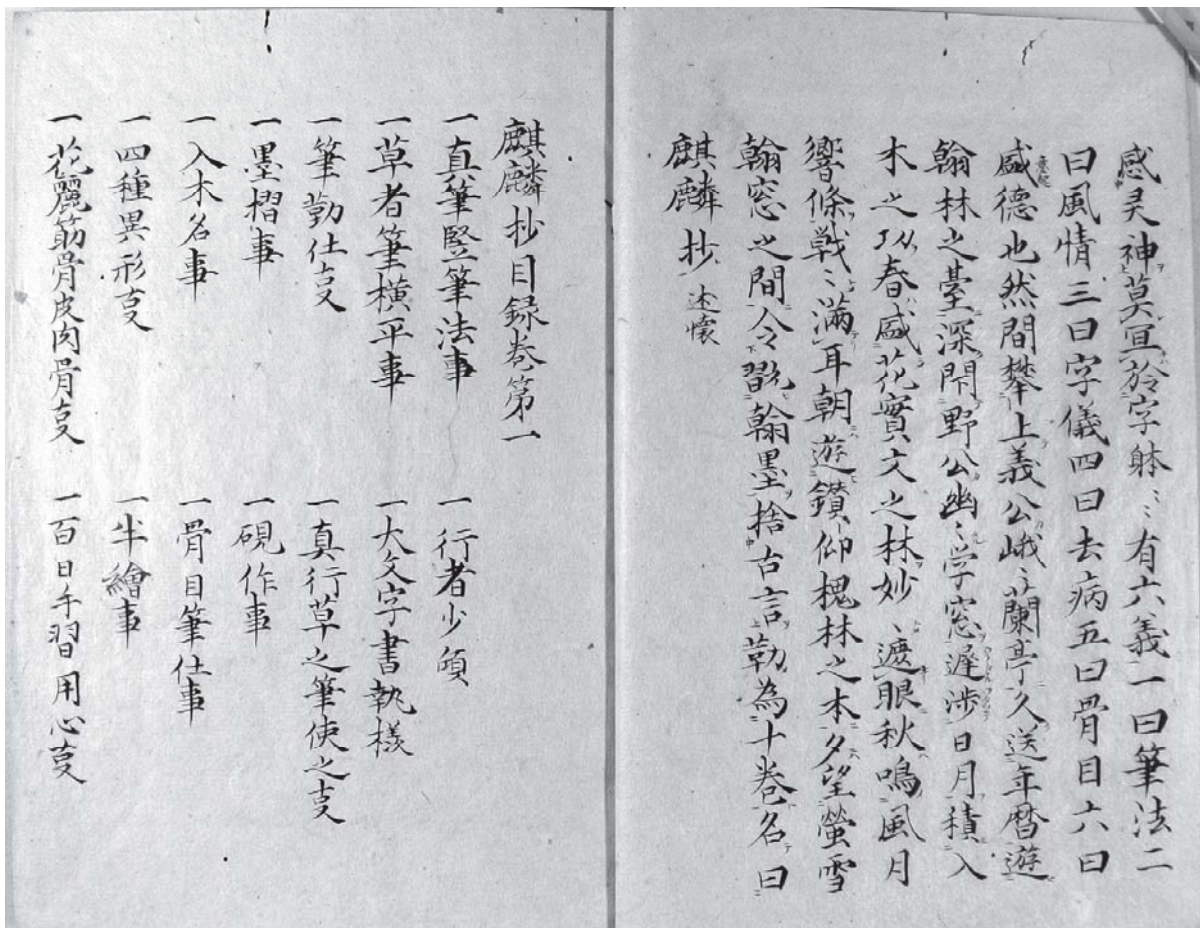 感灵神莫宣於字躰〻有六義一曰筆法二
曰風情三曰字儀四曰去病五曰骨目六曰
盛德也然間攀上義公峨〻蘭亭久送年暦遊
翰林之臺深閇野公幽〻学窓遅渉日月積入
木之功春盛花實文之林妙〻遮眼秋鳴風月
響條戦〻満耳朝遊鑚仰槐林之木夕望螢雪
翰窓之間令翫翰墨捨古言勒為十巻名曰
麒麟抄 述懐
麒麟抄目録巻第一
一真筆竪筆法事 一行者少頌
一草者筆横平事 一大文字書執様
一筆勤仕叓 一真行草之筆使之叓
一墨摺事 一硯作事
一入木名事 一骨目筆仕事
一四種異形叓 一牛繪事
一花麗筋骨皮肉骨叓 一百日手習用心叓